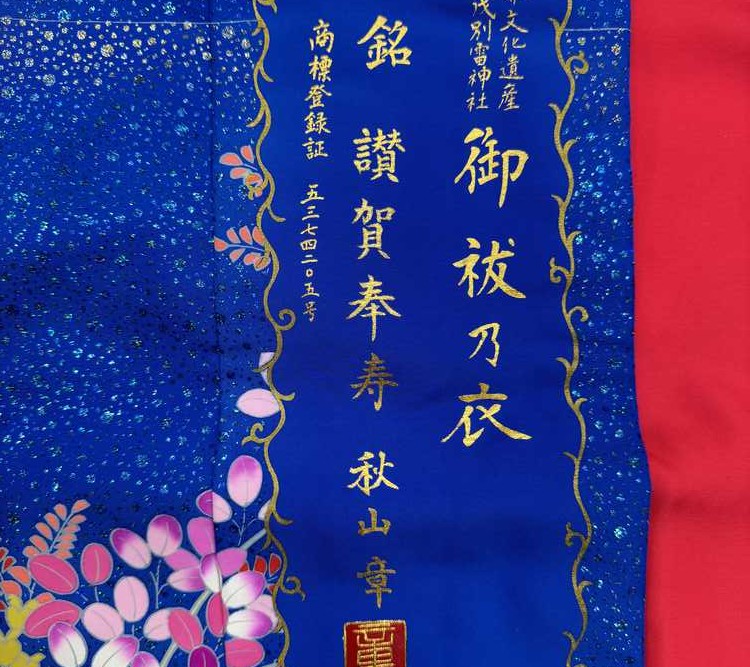 文化遺産
別雷神社
御祓乃衣
銘 讃賀奉寿 秋山章
商標登録証 五三七四二〇五号
章